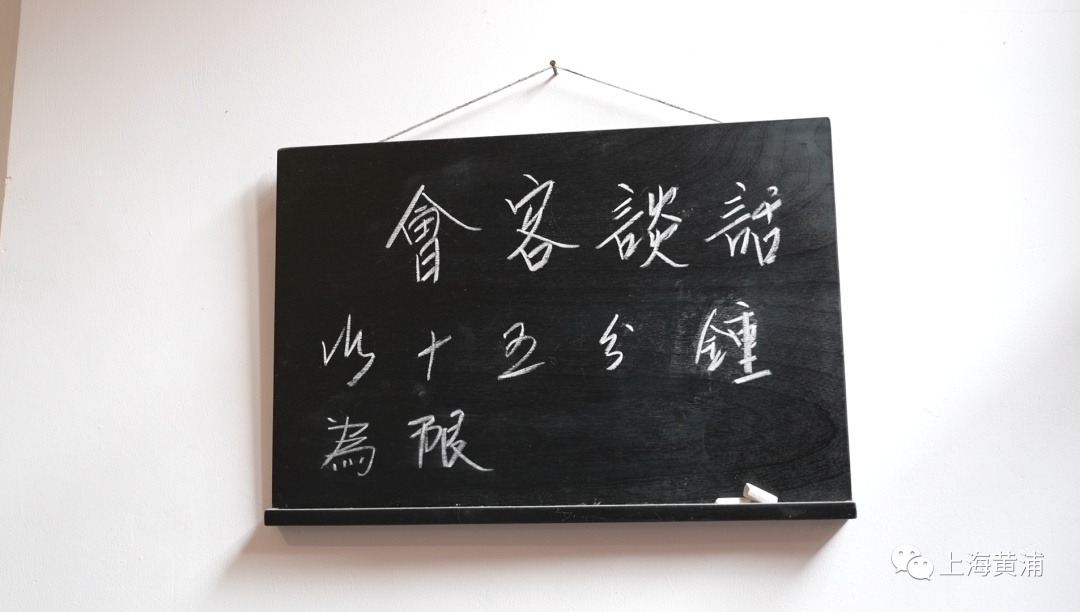 會客談話
以十五分鍾
為限
上海黄浦